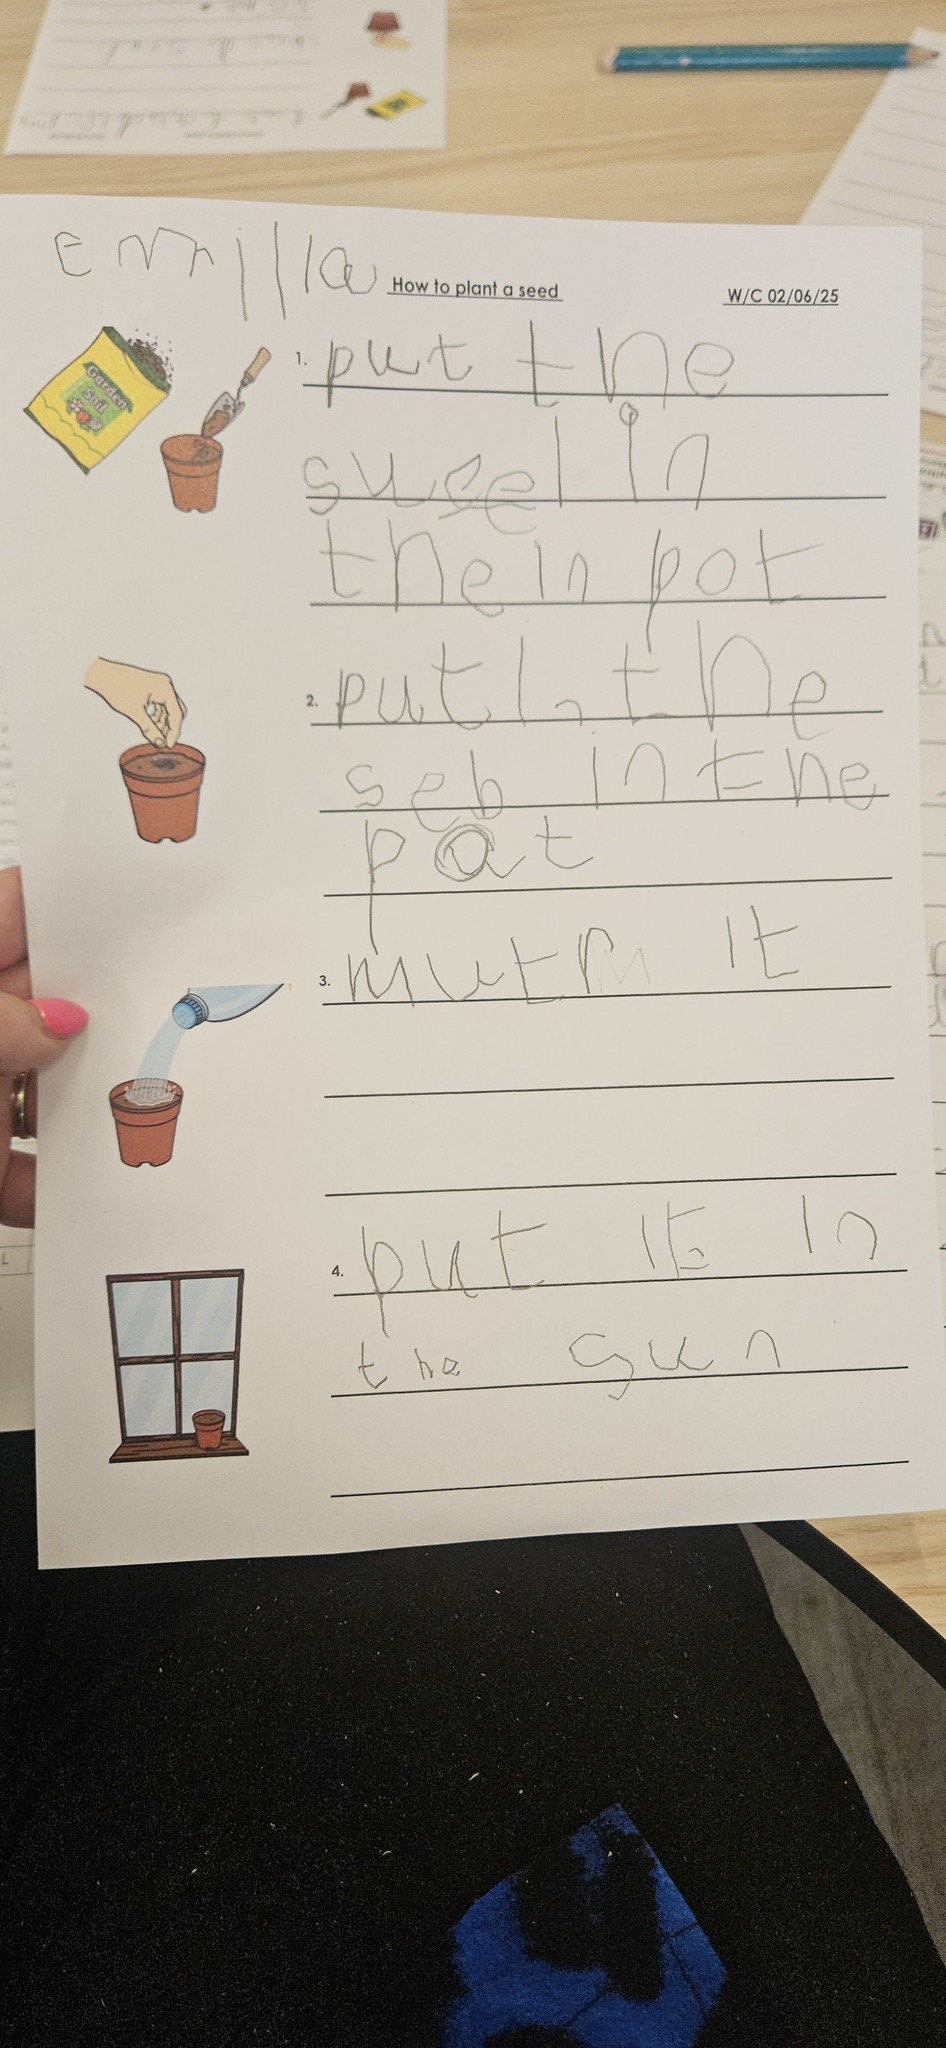 emilia
How to plant a seed
W/C 02/06/25
Garden
Soil
1. put the
sweel in
the in pot
2. put in the
seb in the
pot
3. mutm it
4. put it in
the sun